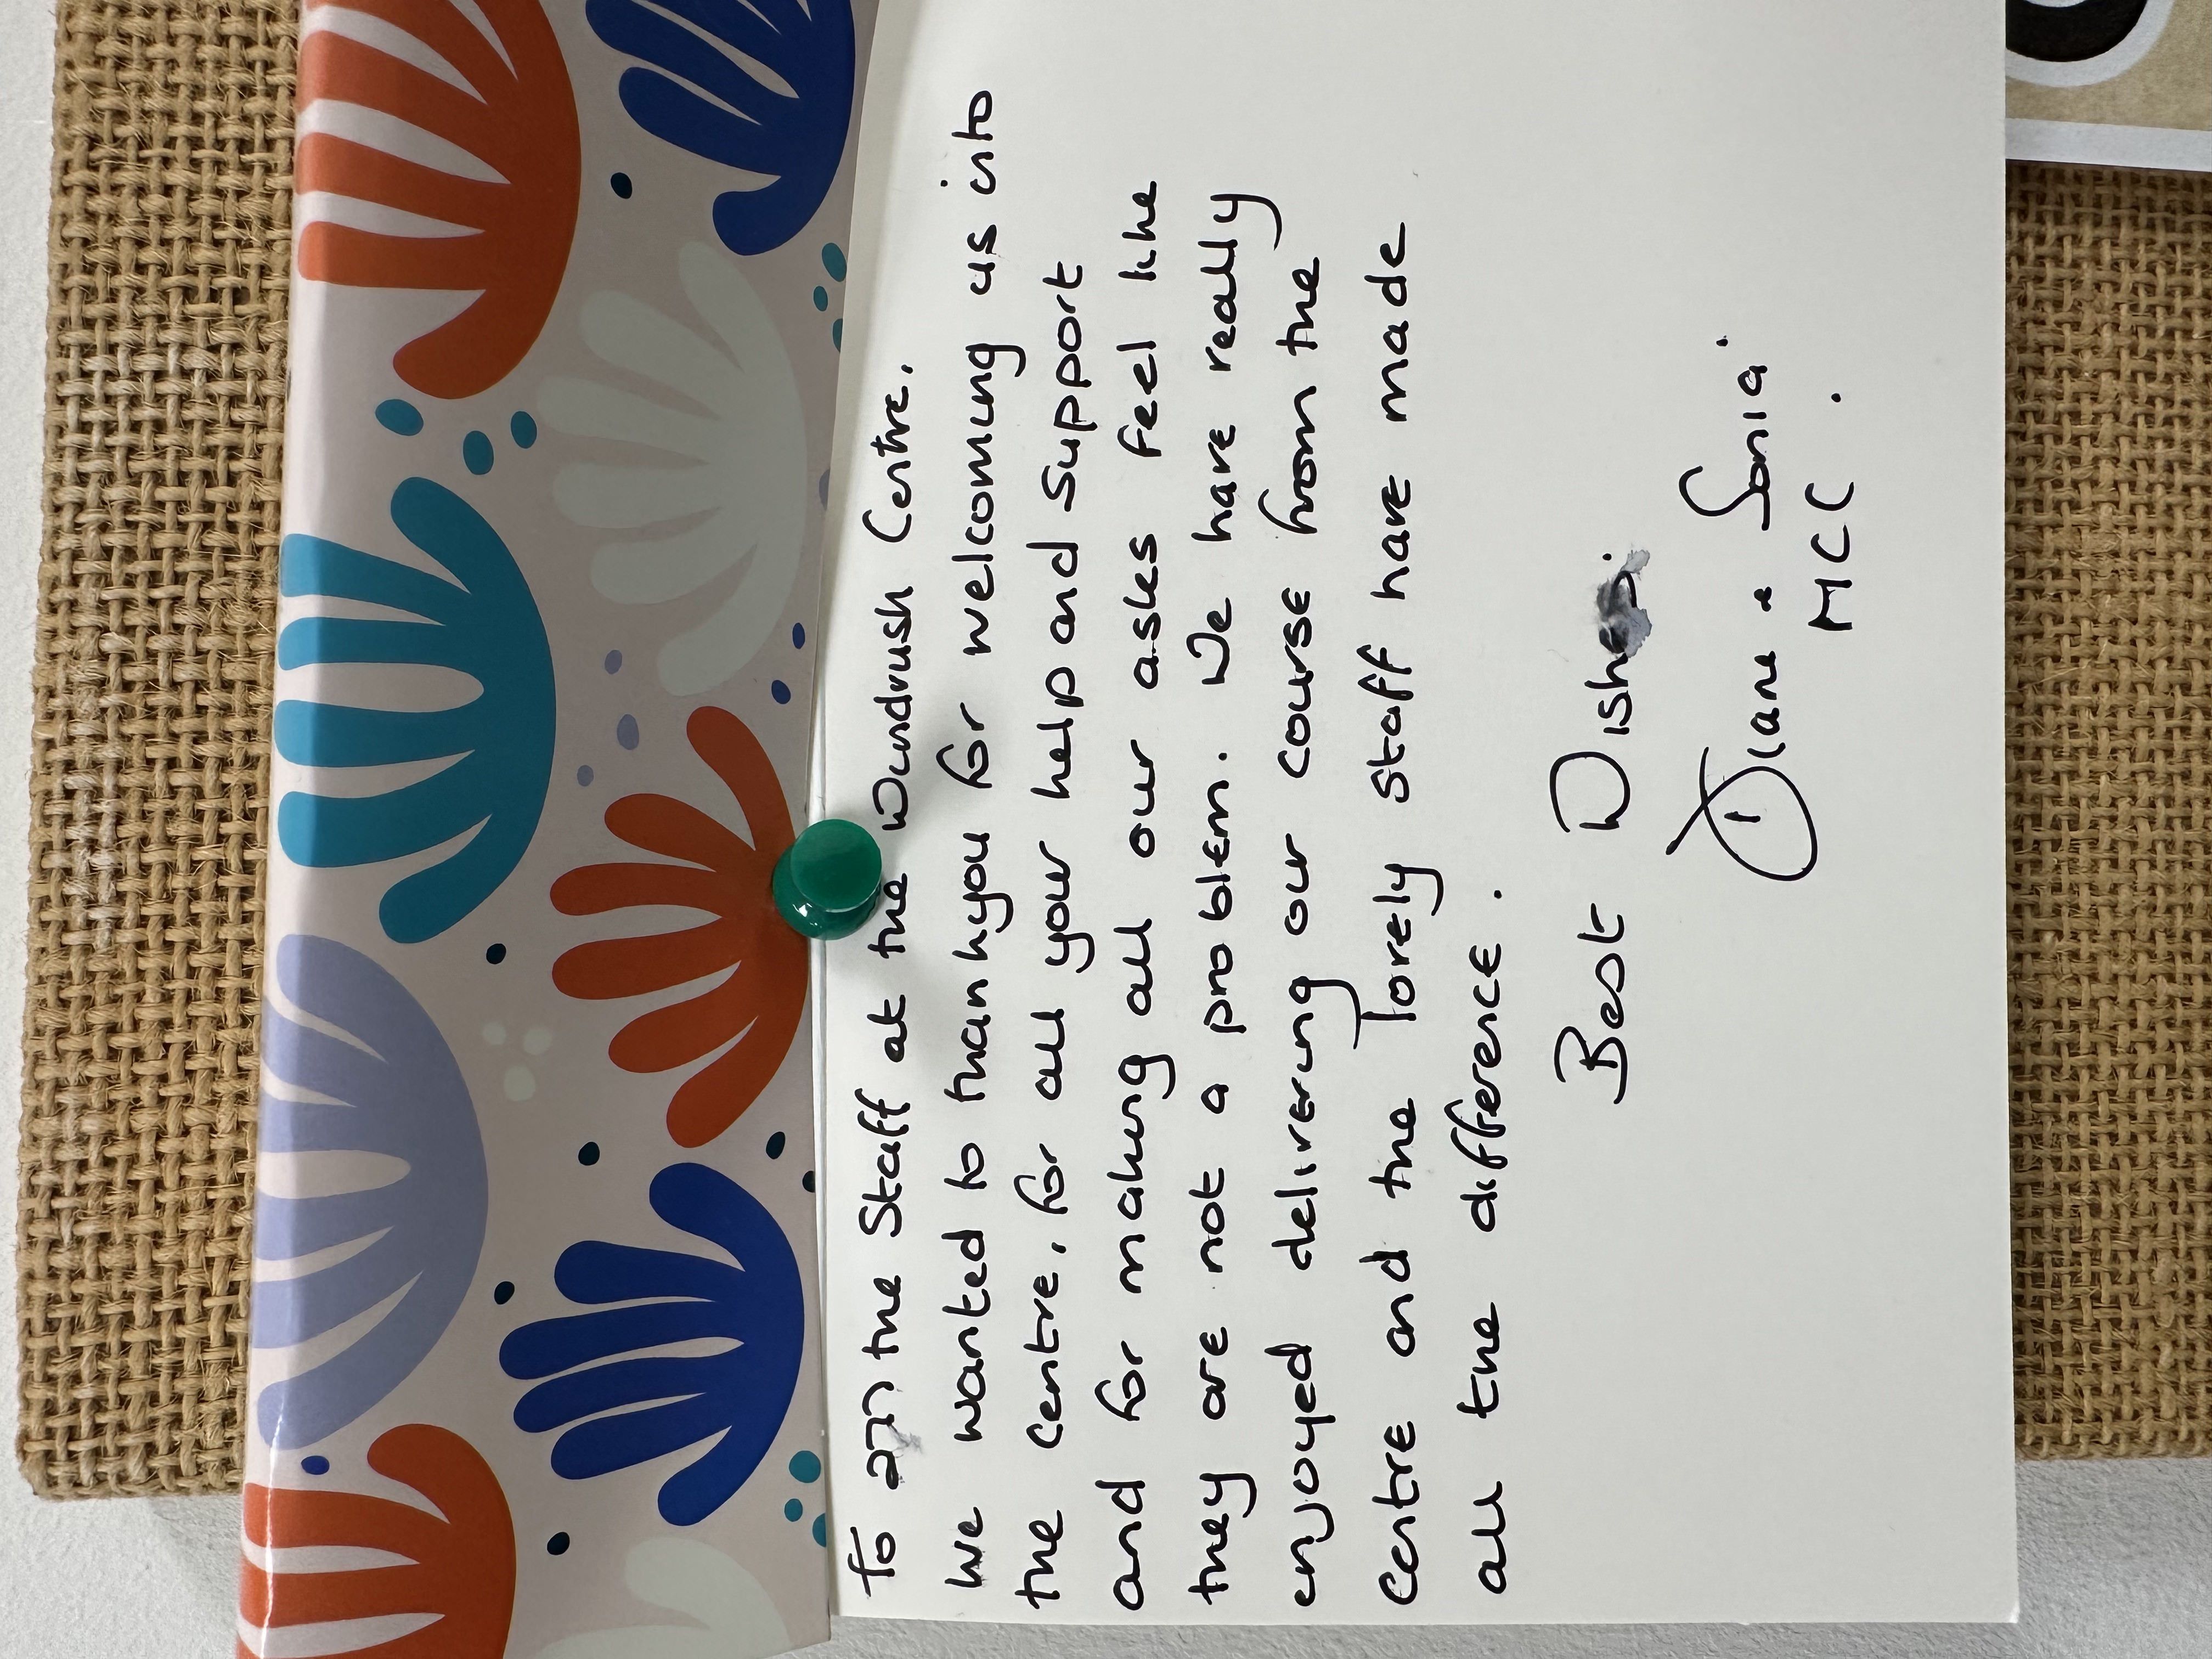 To all the Staff at the Windrush Centre.
We wanted to thankyou for welcoming us into
the centre, for all your help and support
and for making all our asks feel like
they are not a problem. We have really
enjoyed delivering our course from the
centre and the lovely staff have made
all the difference.
Best Wishes.
Diane & Sonia
MCC.